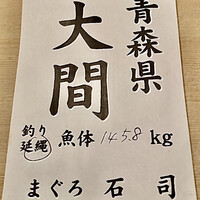 青森県
大間
釣り
延縄
魚体 145.8 kg
まぐろ 石司